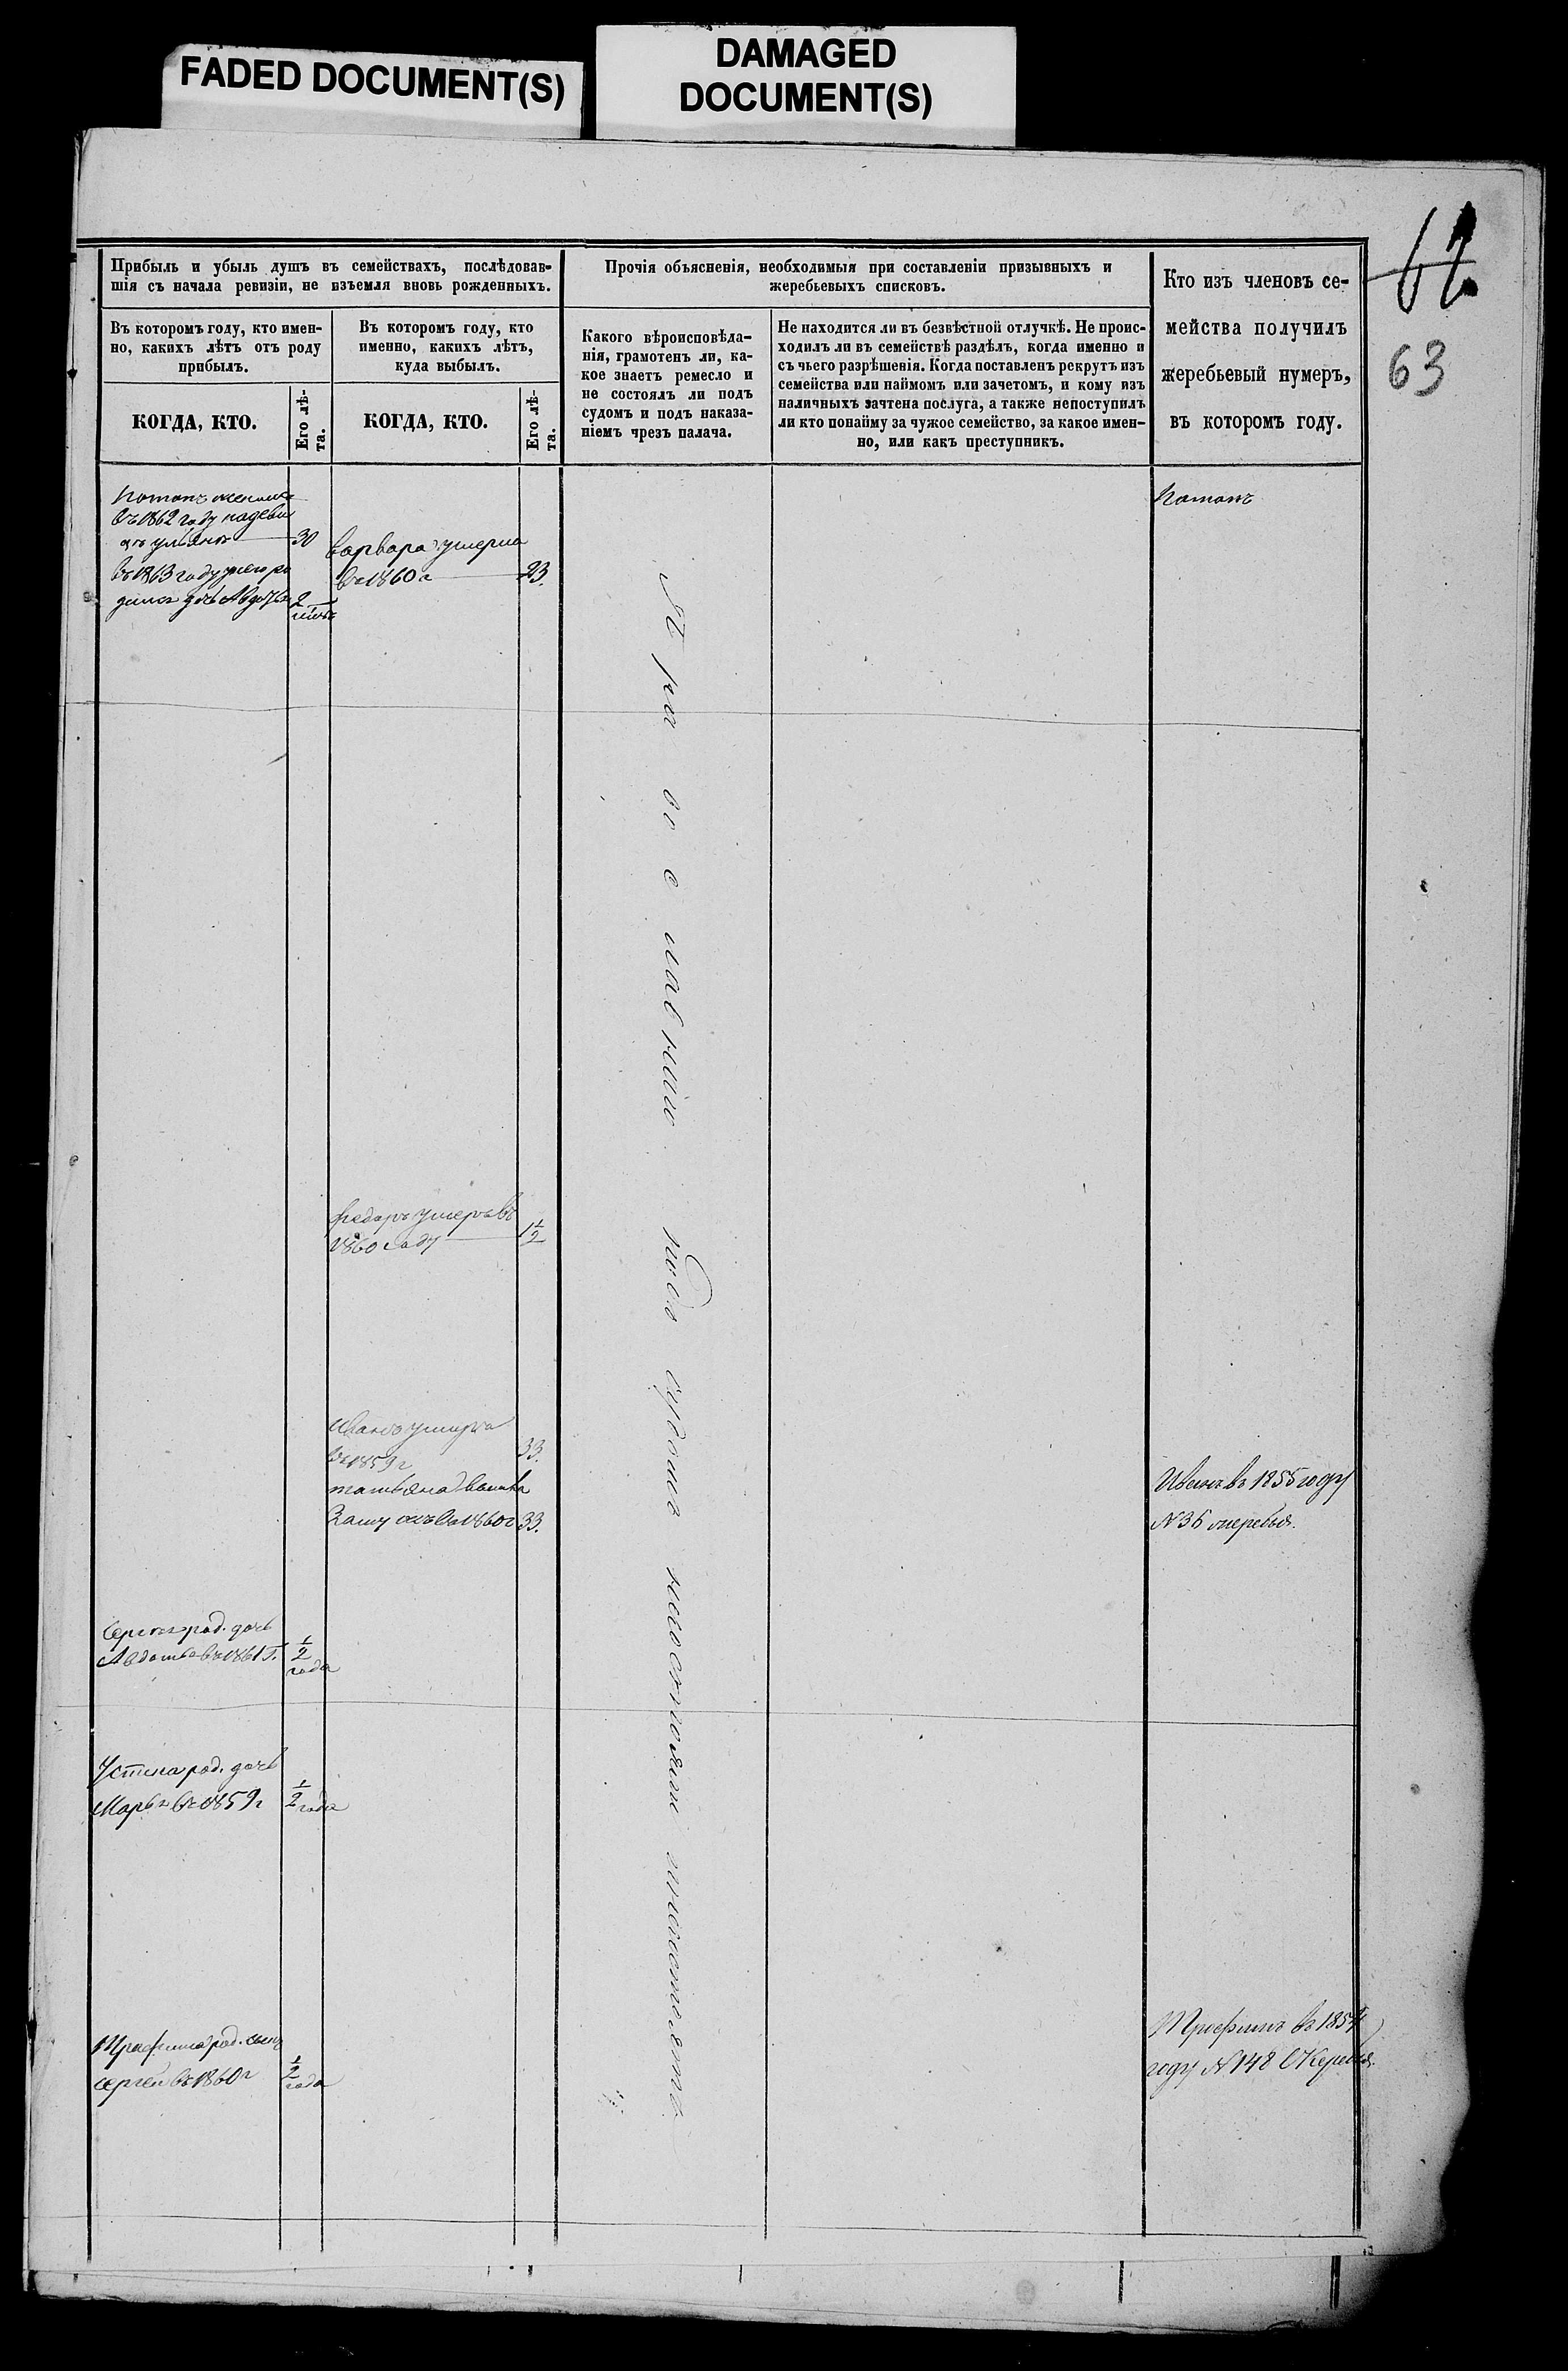 FADED DOCUMENT(S)
DAMAGED
DOCUMENT(S)
62
63
Прибыль и убыль душъ въ семействахъ, послѣдовав-
шія съ начала ревизіи, не взъемля вновь рожденныхъ.
Въ которомъ году, кто имен-
но, какихъ лѣтъ отъ роду
прибылъ.
КОГДА, КТО.
Его лѣ-
та.
Въ которомъ году, кто
именно, какихъ лѣтъ,
куда выбылъ.
КОГДА, КТО.
Его лѣ-
та.
Прочія объясненія, необходимыя при составленіи призывныхъ и
жеребьевыхъ списковъ.
Какого вѣроисповѣда-
нія, грамотенъ ли, ка-
кое знаетъ ремесло и
не состоялъ ли подъ
судомъ и подъ наказа-
ніемъ чрезъ палача.
Не находится ли въ безвѣстной отлучкѣ. Не проис-
ходилъ ли въ семействѣ раздѣлъ, когда именно и
съ чьего разрѣшенія. Когда поставленъ рекрутъ изъ
семейства или наймомъ или зачетомъ, и кому изъ
наличныхъ зачтена послуга, а также непоступилъ
ли кто понайму за чужое семейство, за какое имен-
но, или какъ преступникъ.
Кто изъ членовъ се-
мейства получилъ
жеребьевый нумеръ,
въ которомъ году.
Потапъ
въ 1862 году
30
въ 1863 году
дочь Авдотья 2
варвара умерла
въ 1860 г 23.
Потапъ
Православнаго подъ судомъ несостояли
федоръ умеръ въ
1860 году 1 1/2
Иванъ умеръ
въ 1859 г 33.
татьяна
Замужъ въ 1860 г 33.
Иванъ въ 1855 году
N 36 жеребья.
Сергея род. дочь
Авдотья въ 1861 г. 1/2
года
Устина род. дочь
Марья въ 1859 г 1/2 года
Трофима род. сынъ
Сергей въ 1860 г 1/2
года
Трофимъ въ 1854
году N 148 Жеребья.